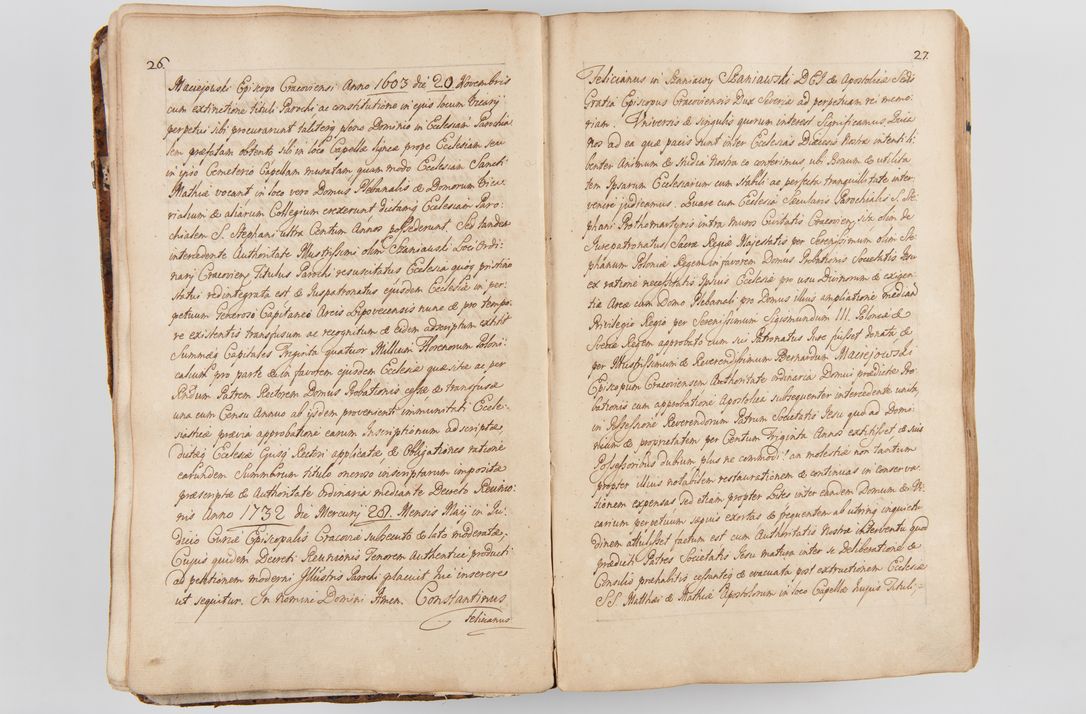 26
Maciejowski Episcopo Cracoviensi Anno 1603 die 20 Novembris
cum extinctione tituli Parochi ac constitutione in ejus locum Vicarij
perpetui sibi procurarunt taliterq plena Dominio in Eclesiam Parochia
lem præfatam obtento sibi in loco Capellæ ligneæ prope Ecclesiam seu
in ipso Cemeterio Capellam muratam quam modo Ecclesiam Sancti
Mathiæ vocant in loco vero Domus Plebanalis & Domorum Vica-
rialium & aliarum Collegium erexerunt dictamq Eclesiam Paro-
chialem S. Stephani ultra Centum Annos possederunt. Sed tandem
intercedente Authoritate Illustrissimi olim Szaniawski Loci Ordi-
narij Cracovien Titulus Parochi resuscitatus Ecclesia quoq pristino
statui redintegrata est & Juspatronatus ejusdem Ecclesiæ in per-
petuum Generoso Capitaneo Arcis Lipovecensis nunc & pro tempo-
re existenti transfusum ac recognitum & eidem adscriptum extitit
Summæq Capitales Triginta quatuor Millium Florenorum Poloni-
calium pro parte & in favorem ejusdem Ecclesiæ quæsitæ ac per
Rndum Patrem Rectorem Domus Probationis cessæ & transfusæ
una cum Censu Annuo ab ijsdem provenienti immunitati Eccle-
siasticæ prævia approbatione earum Inscriptionum adscriptæ
dictæq Eclesiæ Ejusq Rectori applicatæ & Obligationes ratione
earundem Summarum titulo oneroso inscriptarum impositæ
præscriptæ & Authoritate Ordinaria mediante Decreto Reunio-
nis Anno 1732 die Mercurij 28. Mensis Maij in Ju-
dicio Curiæ Episcopalis Cracoviæ subsecuto & lato moderatæ,
Cujus quidem Decreti Reunionis Tenorem Authentice producti
ad petitionem moderni Illustris Parochi placuit hic inserere
ut sequitur. In Nomine Domini Amen. Constantinus
Felicianus
27
Felicianus in Szaniawy Szaniawski D E I & Apostolicæ Sedis
Gratia Episcopus Cracoviensis Dux Severiæ ad perpetuam rei memo-
riam. Universis & singulis quorum interest Significamus Quia
nos ad ea quæ pacis sunt inter Ecclesias Diæcesis Nostræ intenti li-
benter Animum & Studia Nostra eo conferimus, ubi bonum & utilita
tem Ipsarum Ecclesiarum cum stabili ac perfecta tranquillitate inter-
venire judicamus. Quare cum Ecclesia Sæcularis Parochialis S. Ste-
phani Prothomartyris intra muros Civitatis Cracovien, sita, olim de
Jurepatronatus Sacræ Regiæ Majestatis per Serenissimum olim Ste-
phanum Poloniæ Regem in favorem Domus Probationis Societatis Jesu
ex ratione necessitatis Ipsius Ecclesiæ pro usu Divinorum & exigen-
tia Areæ cum Domo Plebanali pro Domus illius ampliatione median
Privilegio Regio per Serenissimum Sigismundum III. Poloniæ &
Sueciæ Regem approbato cum sui Patronatus Jure fuisset donata &
per Illustrissimum & Reverendissimum Bernardum Maciejowski
Episcopum Cracoviensem Authoritate ordinaria Domui prædictæ Pro-
bationis cum approbatione Apostolica subsequenter intercedente unita,
in Possessione Reverendorum Patrum Societatis Jesu quo ad Domi-
nium & proprietatem per Centum Triginta Annos extitisset & suis
Possessoribus dubium plus ne commodi an molestiæ non tantum
propter illius notabilem restaurationem & continuas in conserva-
tionem expensas sed etiam propter Lites inter eandem Domum & Vi-
carium perpetuum sæpius exortas & frequentem ab utrinq inquietu
dinem attulisset factum est cum Authoritatis Nostræ interventu quod
prædicti Patres Societatis Jesu matura inter se Deliberatione &
Consilio præhabitis cessantes & evacuata post extructionem Ecclesiæ
S.S. Matthæi & Mathiæ Apostolorum in loco Capellæ hujus Tituli,